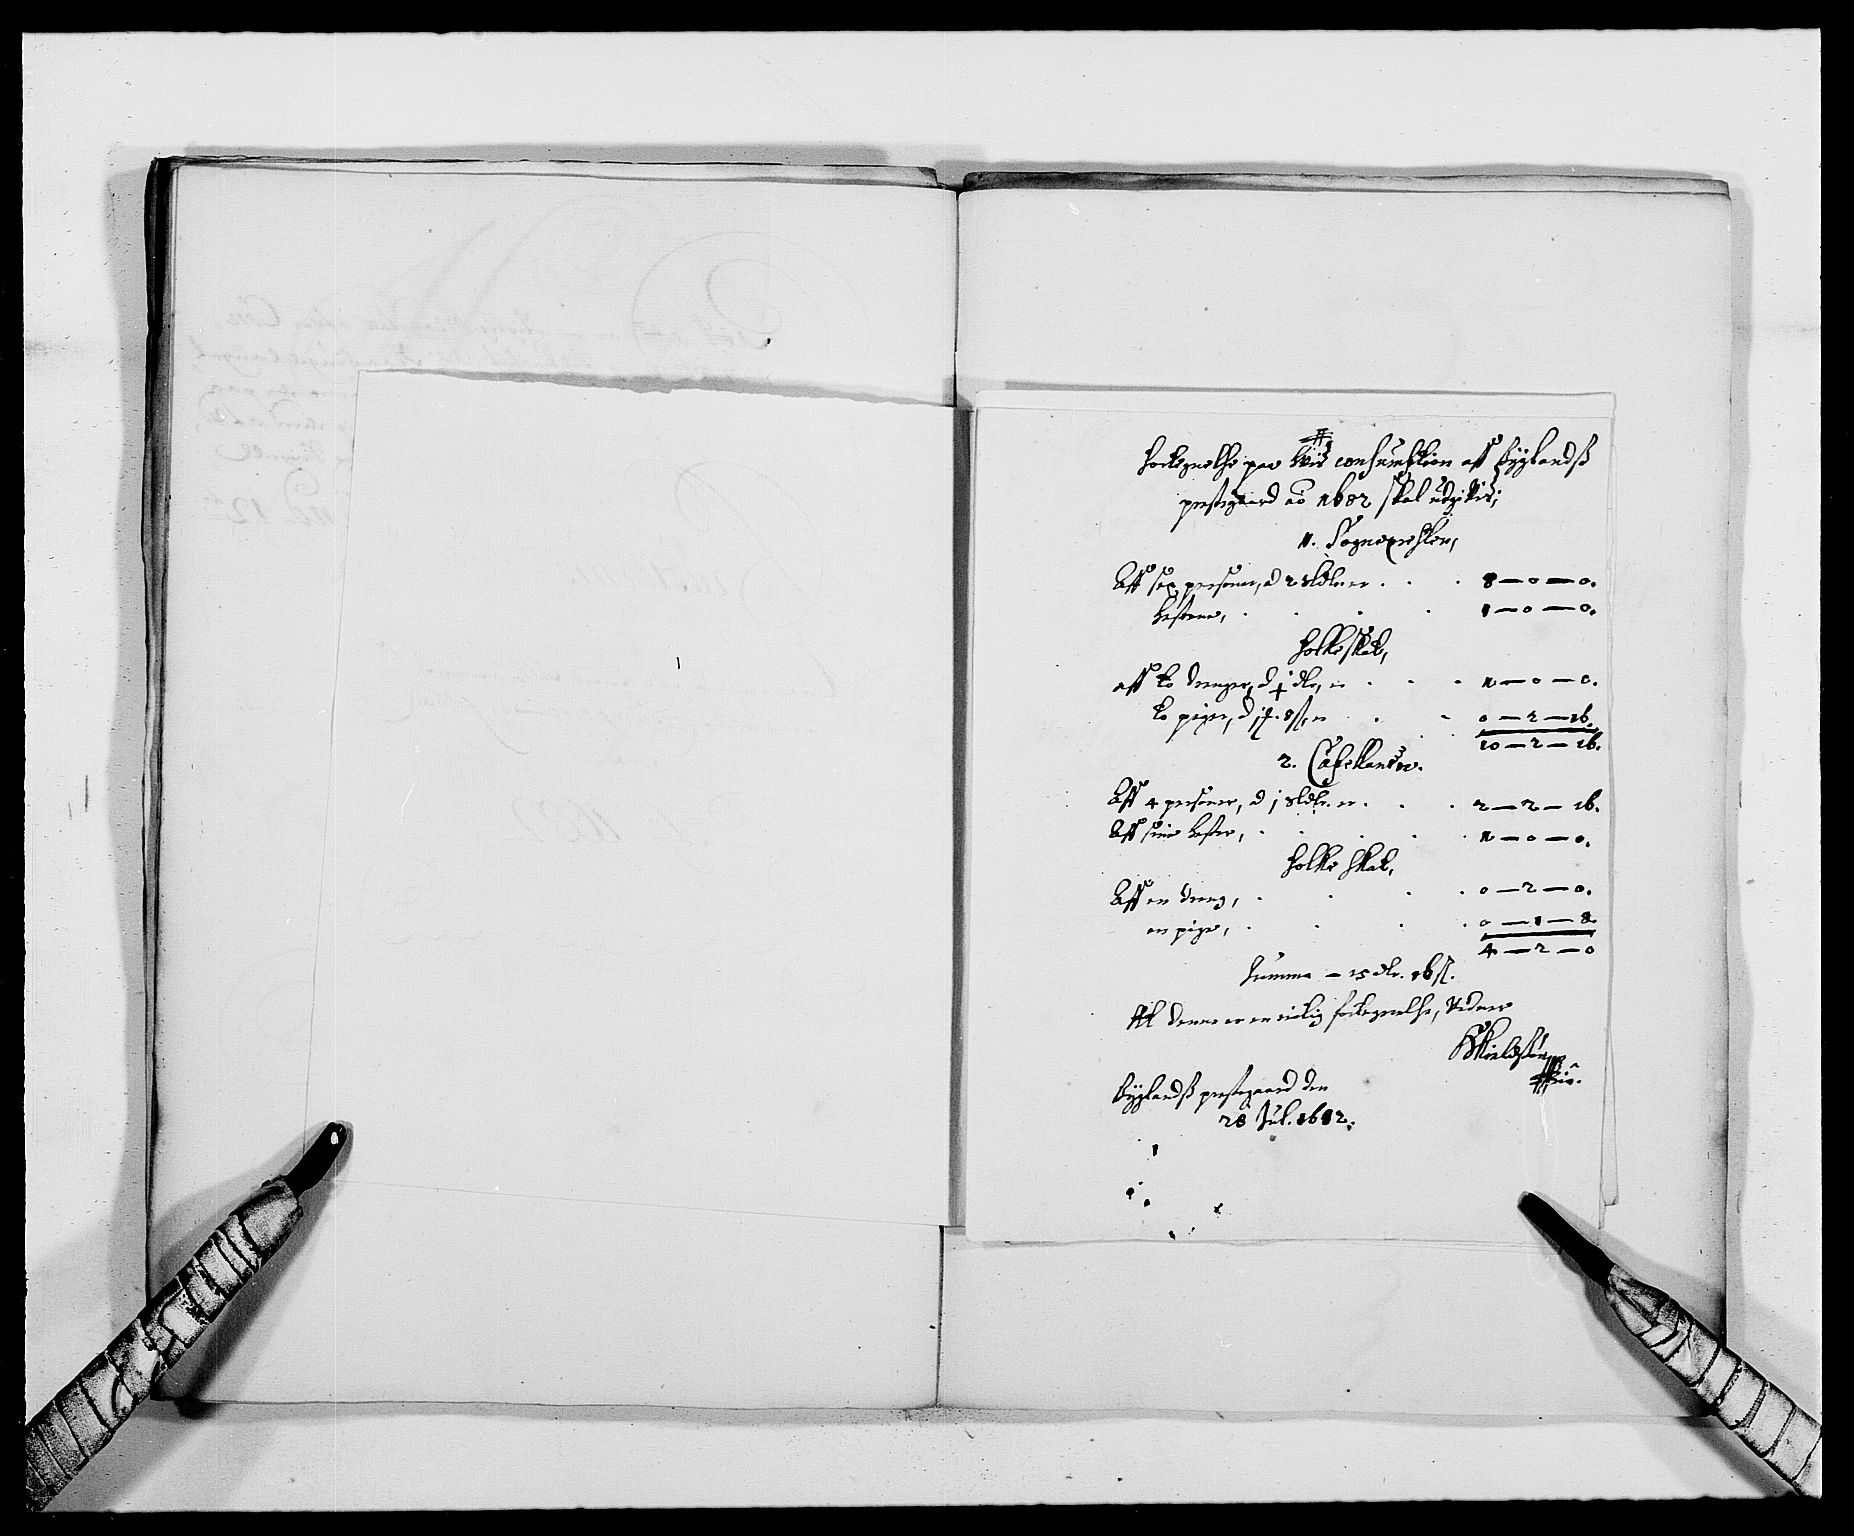 Fortegnelse paa hvis consumtion aff Byglandß
prestegaard aō 1682 skal udgifvis;
1. Sognepresten,
Aff sex personer, à 2 sldlr. er . . . 8 — 0 — 0.
hestene, . . . . 1 — 0 — 0.
Folkeskat,
aff to drenger, à ½ dlr, er . . . 1 — 0 — 0.
to piger, à j ℔. 8 ß, er . . 0 — 2 — 16.
10 — 2 — 16.
2. Capellanen.
Aff 4 personer, à j sldlr. er . . . 2 — 2 — 16.
Aff sine hester, . . . . 1 — 0 — 0.
Folke skat,
Aff en dreng, . . . . 0 — 2 — 0.
en pige, . . . . 0 — 1 — 8.
4 — 2 — 0
Summa — 15 dlr. 16 ß.
At denne er en rictig fortegnelse, vidner
Byglandß prestegaard den
28 Jul. 1682.